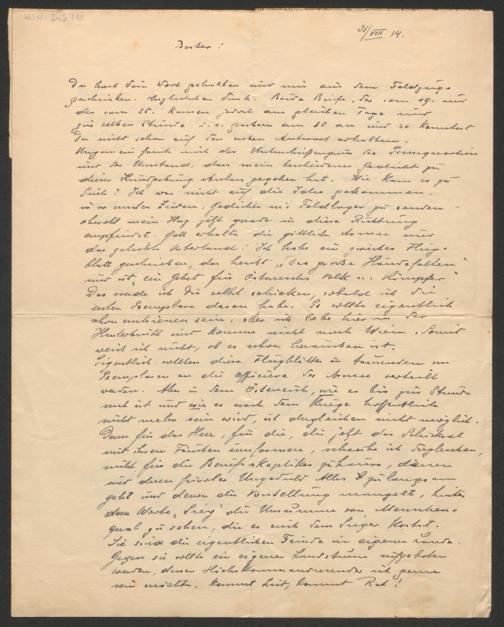 H.I.N. 242.710
31/VIII 14.
Bester!
Du hast dein Wort gehalten und mir aus dem Feldzuge
geschrieben. Herzlichsten Dank. Beide Briefe, der vom 19. und
der vom 25. kamen jedoch am gleichen Tage und
zur selben Stunde gestern am 30. an und so konntest
Du nicht schon auf den ersten Antwort erhalten.
Ungemein freut mich die
und der Umstand, dass mein Gedicht zu
dieser Kundgebung Anlass gegeben hat. Wie kam es zu
Euch? Ich war nicht auf die Idee gekommen,
in so ernsten Zeiten, Gedichte ins Feldlager zu senden
obwohl mein Herz jetzt gerade in diese Richtung
Gott erhalte die göttliche Sonne und
das geliebte Vaterland! Ich habe ein zweites Flug-
blatt geschrieben, das heisst „Das große Händefalten“
und ist „ein Gebet für Österreichs Volk u. Kämpfer“
Das werde ich Dir selbst schicken, sobald ich die
ersten Exemplare davon habe. Es sollte eigentlich
schon erschienen sein, aber ich lebe hier in der
Hinterbrühl und komme nicht nach Wien, somit
weiß ich nicht, ob es schon heraußen ist.
Eigentlich sollten diese Flugblätter in tausenden von
Exemplaren an die Officiere der Armee verteilt
werden. Aber in dem Österreich, wie es bis zur Stunde
noch ist und wie es nach dem Kriege hoffentlich
nicht mehr sein wird, ist dergleichen nicht möglich.
Denn für das Heer, für die, die jetzt das Schicksal
mit ihren Fäusten umformen, schreibe ich dergleichen,
nicht für die Berufsskeptiker zuhause, denen
und deren frivoler Ungeduld Alles zu langsam
geht und denen die Vorstellung mangelt, hinter
dem Worte „Sieg“ die Unsumme von Menschen-
qual zu sehen, die es auch dem Sieger kostet.
Sie sind die eigentlichen Feinde im eigenen Lande.
Gegen sie sollte ein eigener Landsturm aufgeboten
werden, dessen Höchstkommandierender ich gerne
sein möchte. Kommt Zeit, kommt Rat!